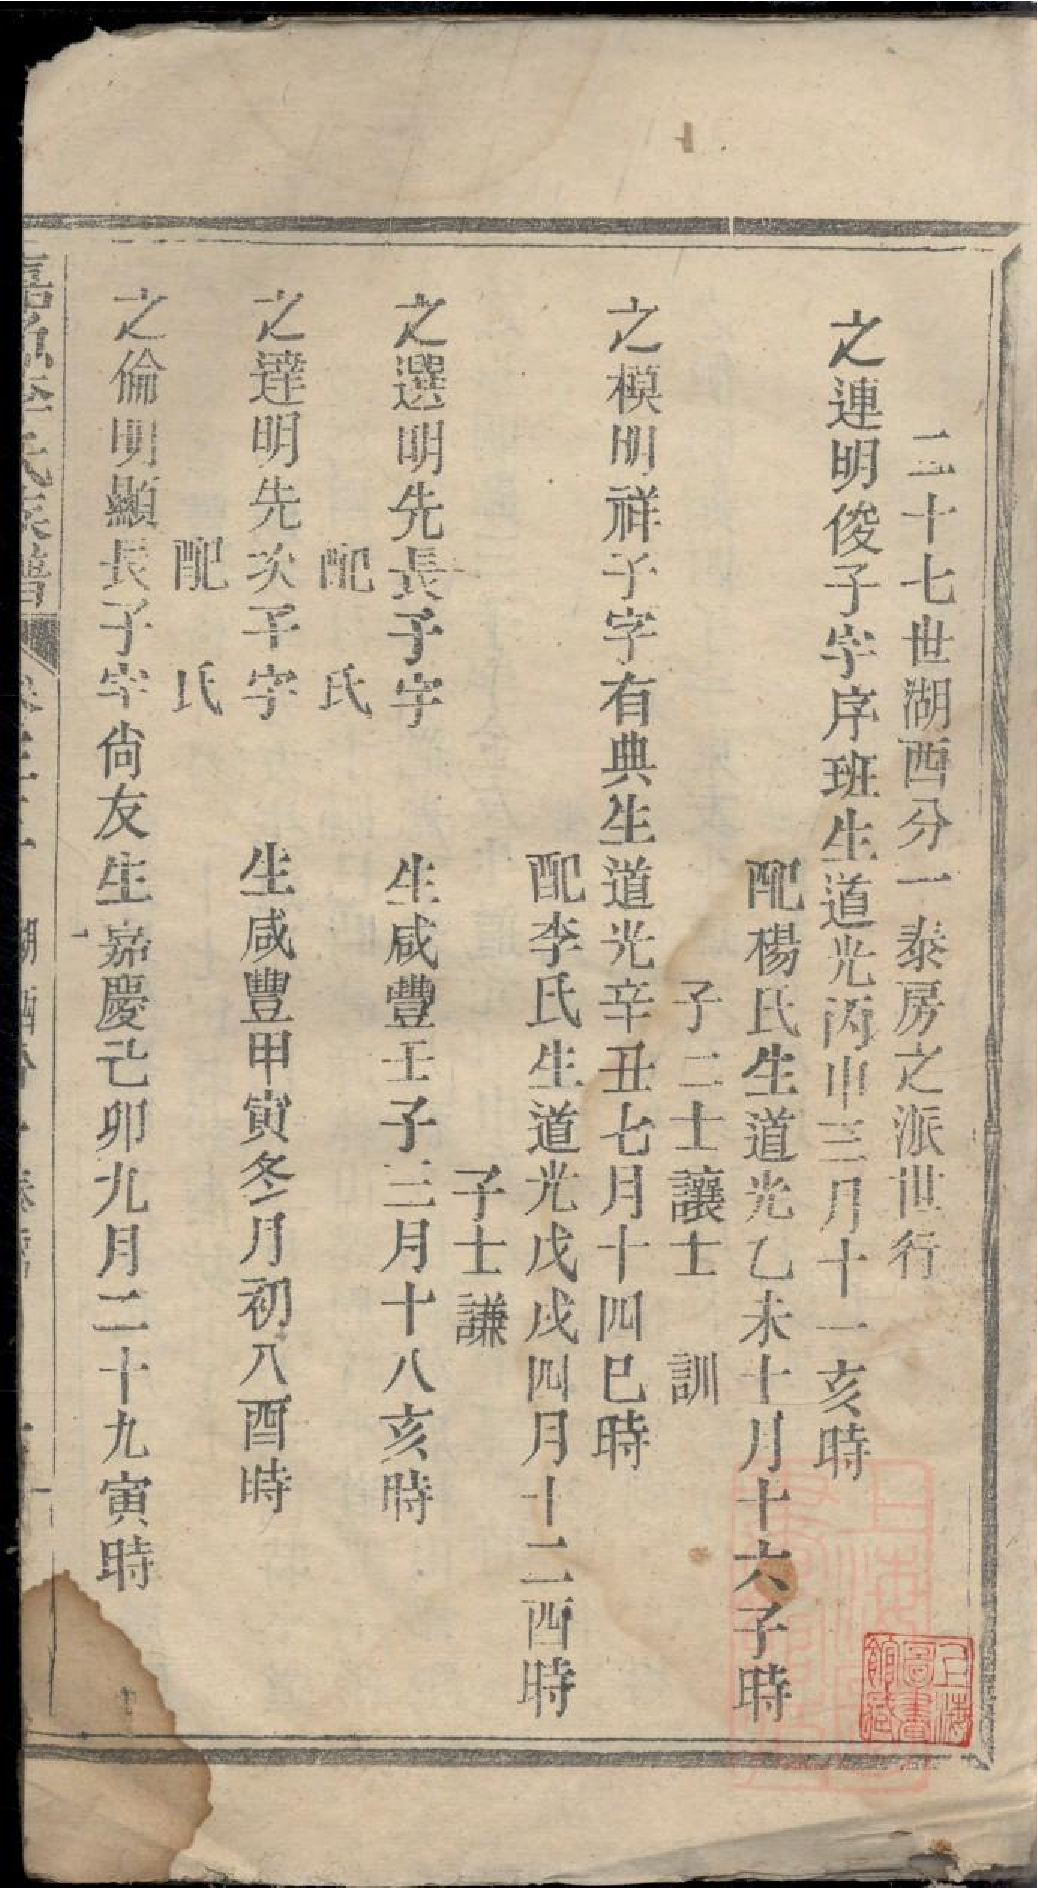 二十七世湖西分一泰房之派世行
之連明俊子字序班生道光丙申三月十一亥時
配楊氏生道光乙未十月十六子時
子二士讓士訓
之模明祥子字有典生道光辛丑七月十四巳時
配李氏生道光戊戌四月十二酉時
子士謙
之選明先長子字 生咸豐壬子三月十八亥時
配 氏
之達明先次子字 生咸豐甲寅冬月初八酉時
配 氏
之倫明顯長子字尙友生嘉慶己卯九月二十九寅時
上海圖書館藏